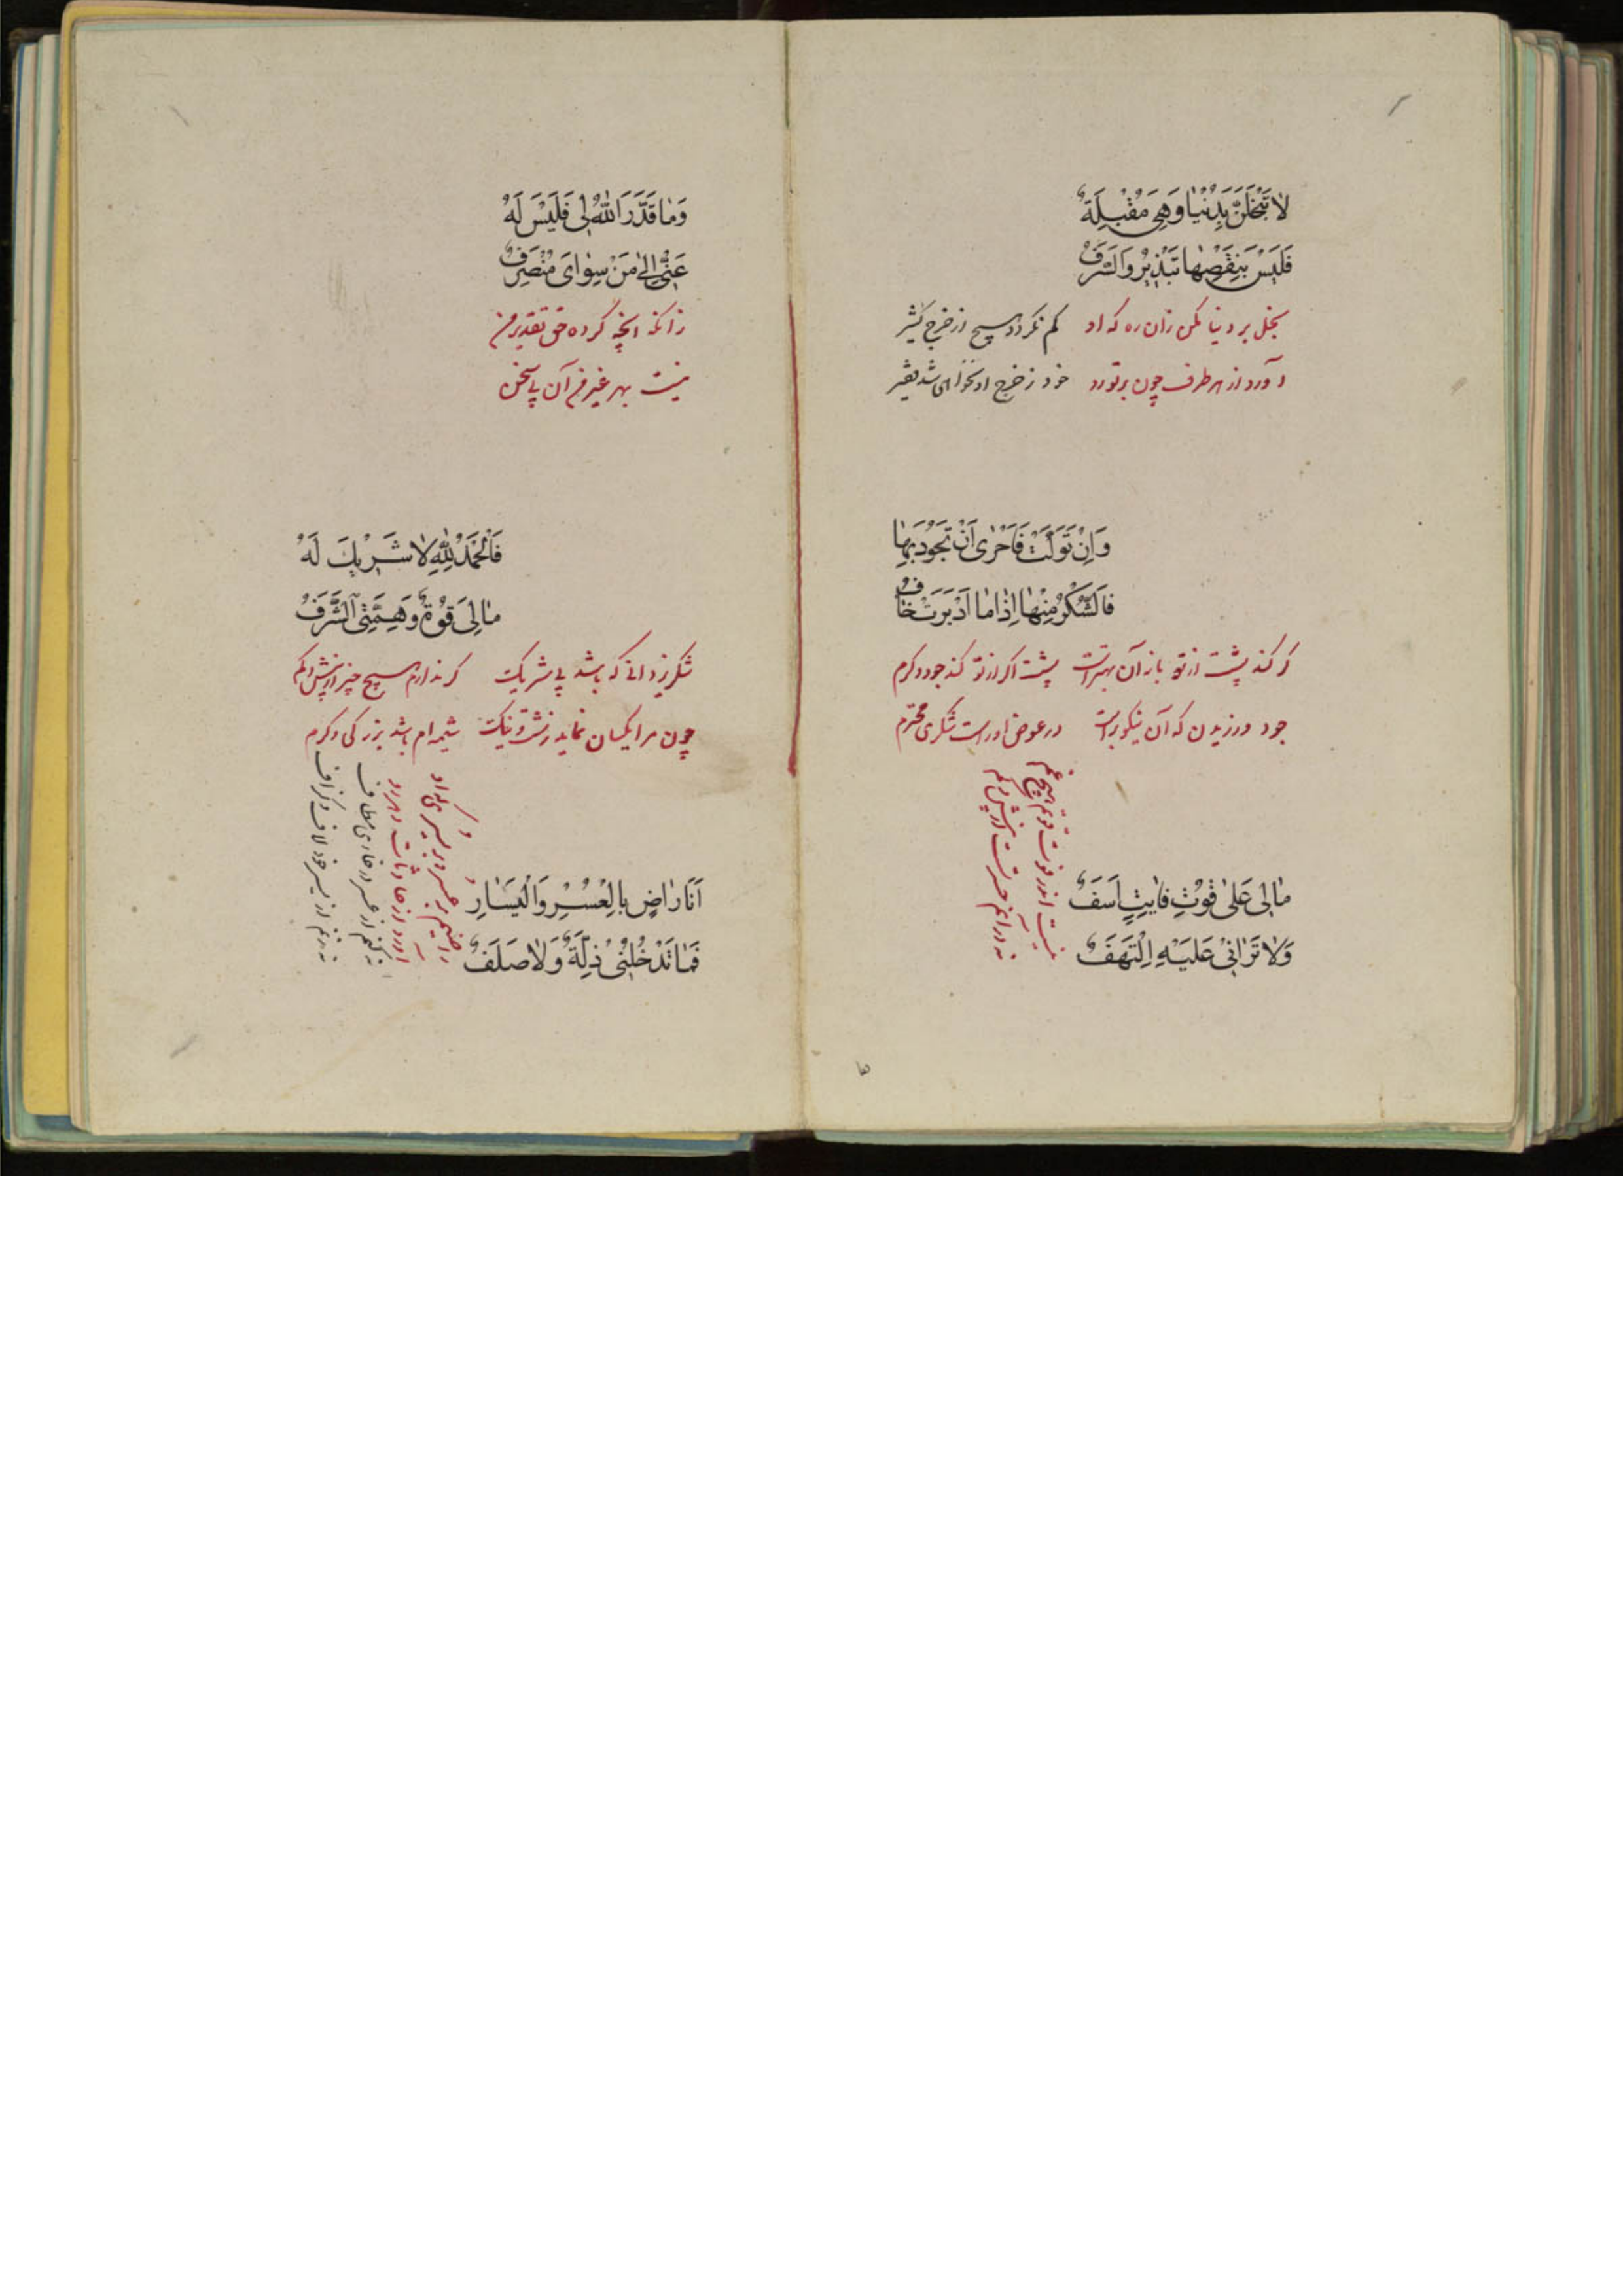 لا تَبْخَلَنَّ بِدُنْیٰا وَهِیَ مُقْبِلَةٌ
فَلَیْسَ یَنْقُصُهٰا تَبْذیرٌ وَالسَّرَفُ
بخل بر دنیا مکن زان ره که او   کم نگردد هیچ از خرج کثیر
آورد از هر طرف چون بر تو رو   خود ز خرج او نخواهی شد فقیر
وَاِنْ تَوَلَّتْ فَاَحْرٰی اَنْ تَجُودَ بِهٰا
فَالشُّکْرُ مِنْهٰا اِذٰا مٰا اَدْبَرَتْ خَلَفُ
گر کند پشت از تو باز آن بهتر است   پشت اگر از تو کند جود و کرم
جود ورزیدن که آن نیکوتر است   در عوض او راست شکری محترم
مٰالی عَلیٰ فَوْتِ فٰایِتٍ اَسَفٌ
وَلاٰ تَرٰانی عَلَیْهِ اِلْتَهَفُ
نیست اندر فوت فوتم هیچ غم
نه در آنم حسرت از بیش و کم
وَمٰا قَدَّرَ اللّٰهُ لی فَلَیْسَ لَهُ
عَنّی اِلیٰ مَنْ سِوٰایَ مُنْصَرِفُ
زانکه آنچه کرده حق تقدیر من
نیست بهر غیر من آن بی سخن
فَالْحَمْدُ لِلّٰهِ لاٰ شَریکَ لَهُ
مٰالِیَ قُوَّةٌ وَهِمَّتِی الشَّرَفُ
شکر یزدانی که باشد بی شریک   گر ندارم هیچ چیز از بیش و کم
چون مرا یکسان نماید زشت و نیک   شیمه ام باشد بزرگی و کرم
اَنَا رٰاضٍ بِالْعُسْرِ وَالْیَسٰارِ
فَمٰا تَدْخُلُنی ذِلَّةٌ وَلاٰ صَلَفٌ
راضیم بر عسر و بر یسری که او
آورد از حادثات دهر رو